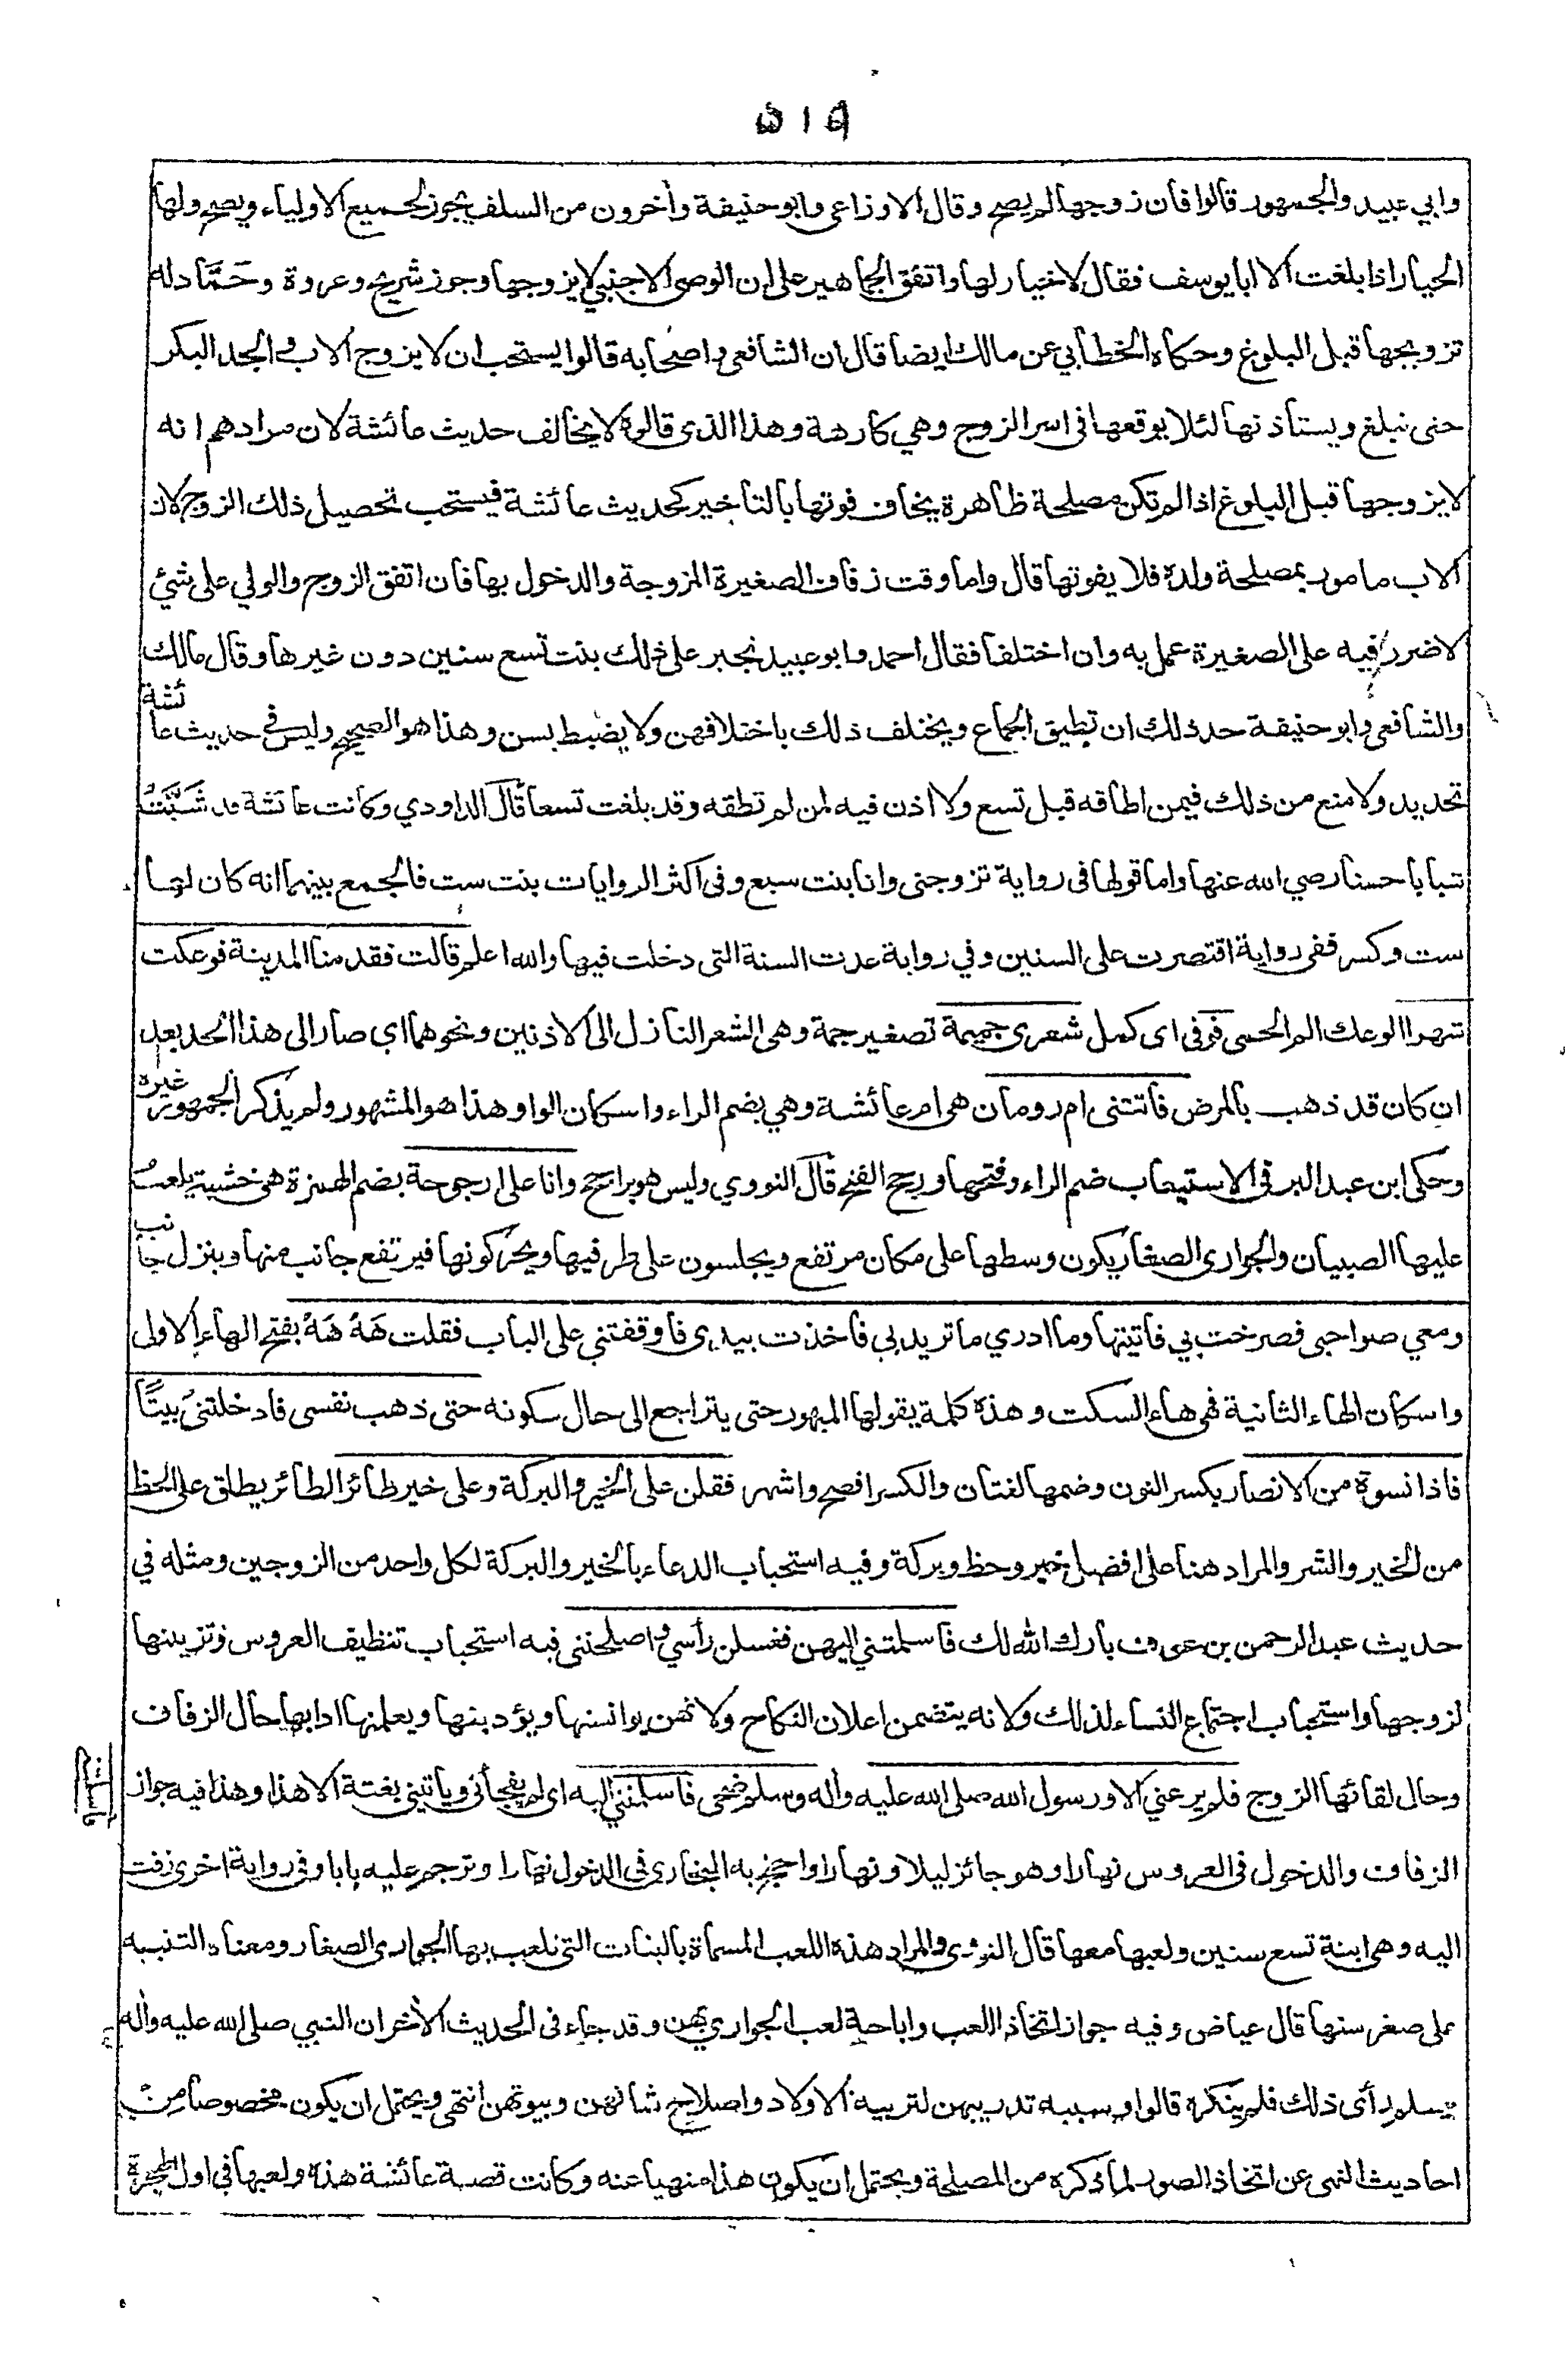 ٥١٩
وابي عبيد والجمهور قالوا فان زوجها لم يصح وقال الاوزاعي وابو حنيفة وأخرون من السلف يجوز لجميع الاولياء ويصح ولها
الخيار اذا بلغت الا ابا يوسف فقال لا خيار لها واتفق الجماهير على ان الوصي الاجنبي لا يزوجها وجوز شريح وعروة وحَمَّاد له
تزويجها قبل البلوغ وحكاه الخطابي عن مالك ايضا قال ان الشافعي واصحابه قالوا يستحب ان لا يزوج الاب والجد البكر
حتى تبلغ ويستأذنها لئلا يوقعها في اسر الزوج وهي كارهة وهذا الذي قالوه لا يخالف حديث عائشة لان مرادهم انه
لا يزوجها قبل البلوغ اذا لم تكن مصلحة ظاهرة يخاف فوتها بالتاخير كحديث عائشة فيستحب تحصيل ذلك الزوج لان
الاب مامور بمصلحة ولده فلا يفوتها قال واما وقت زفاف الصغيرة المزوجة والدخول بها فان اتفق الزوج والولي على شئ
لا ضرر فيه على الصغيرة عمل به وان اختلفا فقال احمد وابو عبيد تجبر على ذلك بنت تسع سنين دون غيرها وقال مالك
والشافعي وابو حنيفة حد ذلك ان تطيق الجماع ويختلف ذلك باختلافهن ولا يضبط بسن وهذا هو الصحيح وليس في حديث عائشة
تحديد ولا منع من ذلك فيمن اطاقه قبل تسع ولا اذن فيه لمن لم تطقه وقد بلغت تسعا قال الداودي وكانت عائشة قد شَبَّتْ
شبابا حسنا رضي الله عنها واما قولها في رواية تزوجني وانا بنت سبع وفي اكثر الروايات بنت ست فالجمع بينهما انه كان لها
ست وكسر ففي رواية اقتصرت على السنين وفي رواية عدت السنة التي دخلت فيها والله اعلم قالت فقدمنا المدينة فوعكت
شهرا الوعك الم الحمى فوفى اى كمل شعري جميمة تصغير جمة وهي الشعر النازل الى الاذنين ونحوهما اي صار الى هذا الحد بعد
ان كان قد ذهب بالمرض فاتتني ام رومان هي ام عائشة وهي بضم الراء واسكان الواو هذا هو المشهور ولم يذكر الجمهور غيره
وحكى ابن عبد البر في الاستيعاب ضم الراء وفتحها ورجح الفتح قال النووي وليس هو براجح وانا على ارجوحة بضم الهمزة هي خشبة يلعب
عليها الصبيان والجواري الصغار يكون وسطها على مكان مرتفع ويجلسون على طرفيها ويحركونها فيرتفع جانب منها وينزل جانب
ومعي صواحبي فصرخت بي فاتيتها وما ادري ما تريد بي فاخذت بيدي فاوقفتني على الباب فقلت هَهْ هَهْ بفتح الهاء الاولى
واسكان الهاء الثانية فهي هاء السكت وهذه كلمة يقولها المبهور حتى يتراجع الى حال سكونه حتى ذهب نفسي فادخلتني بيتًا
فاذا نسوة من الانصار بكسر النون وضمها لغتان والكسر افصح واشهر فقلن على الخير والبركة وعلى خير طائر الطائر يطلق على الحظ
من الخير والشر والمراد هنا على افضل خير وحظ وبركة وفيه استحباب الدعاء بالخير والبركة لكل واحد من الزوجين ومثله في
حديث عبد الرحمن بن عوف بارك الله لك فاسلمتني اليهن فغسلن رأسي واصلحنني فيه استحباب تنظيف العروس وتزيينها
لزوجها واستحباب اجتماع النساء لذلك ولانه يتضمن اعلان النكاح ولانهن يوانسنها ويؤدبنها ويعلمنها ادابها حال الزفاف
وحال لقائها الزوج فلم يرعني الا ورسول الله صلى الله عليه وأله وسلم ضحى فاسلمنني اليه اى لم يفجأني وياتيني بغتة الا هذا وهذا فيه جواز
الزفاف والدخول في العروس نهارا وهو جائز ليلا ونهارا واحتج به البخاري في الدخول نهارا وترجم عليه بابا وفي رواية اخرى زفت
اليه وهي ابنة تسع سنين ولعبها معها قال النووي والمراد هذه اللعب المسماة بالبنات التي تلعب بها الجواري الصغار ومعناه التنبيه
على صغر سنها قال عياض وفيه جواز اتخاذ اللعب واباحة لعب الجواري بهن وقد جاء في الحديث الأخر ان النبي صلى الله عليه وأله
وسلم رأى ذلك فلم ينكره قالوا وسببه تدريبهن لتربية الاولاد واصلاح شانهن وبيوتهن انتهى ويحتمل ان يكون مخصوصا من
احاديث النهي عن اتخاذ الصور لما ذكره من المصلحة ويحتمل ان يكون هذا منهيا عنه وكانت قصة عائشة هذه ولعبها في اول الهجرة